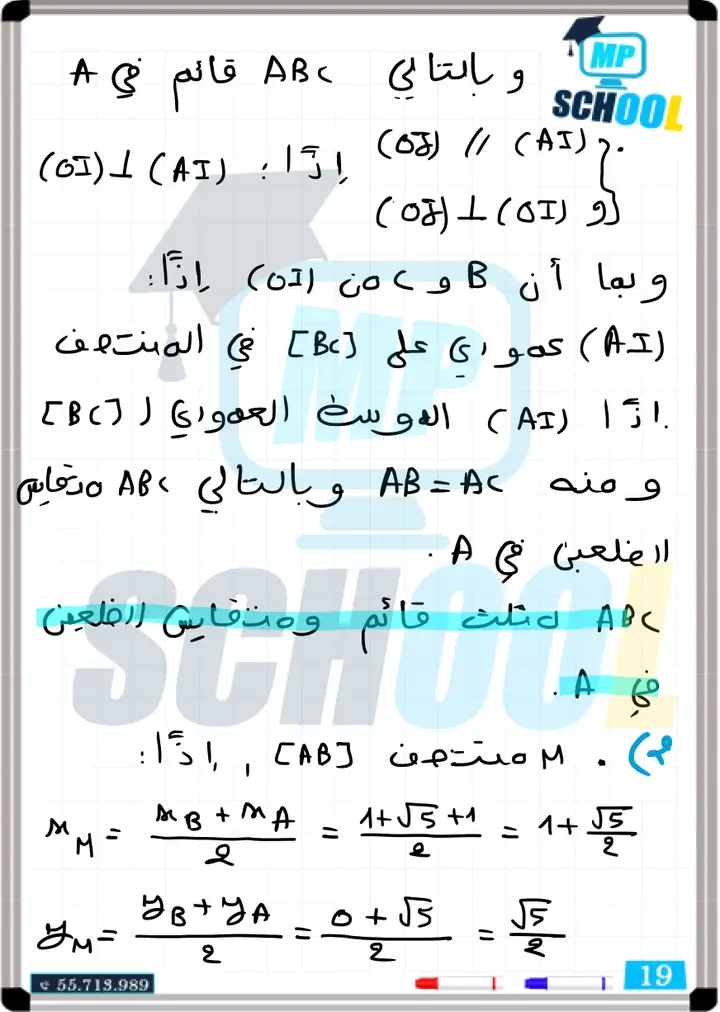 MP
SCHOOL
و بالتالي ABC قائم في A
(OJ) // (AI)
و (OI) ⊥ (OJ)
إذًا : (AI) ⊥ (OI)
وبما أن B و C من (OI) إذًا :
(AI) عمودي على [BC] في المنتصف
إذًا (AI) الموسط العمودي لـ [BC]
ومنه AB = AC وبالتالي ABC متقايس
الضلعين في A .
ABC مثلث قائم ومتقايس الضلعين
في A .
2) . M منتصف [AB] , إذًا :
x_M = (x_B + x_A)/2 = (1+√5+1)/2 = 1+√5/2
y_M = (y_B + y_A)/2 = (0+√5)/2 = √5/2
55.713.989
19